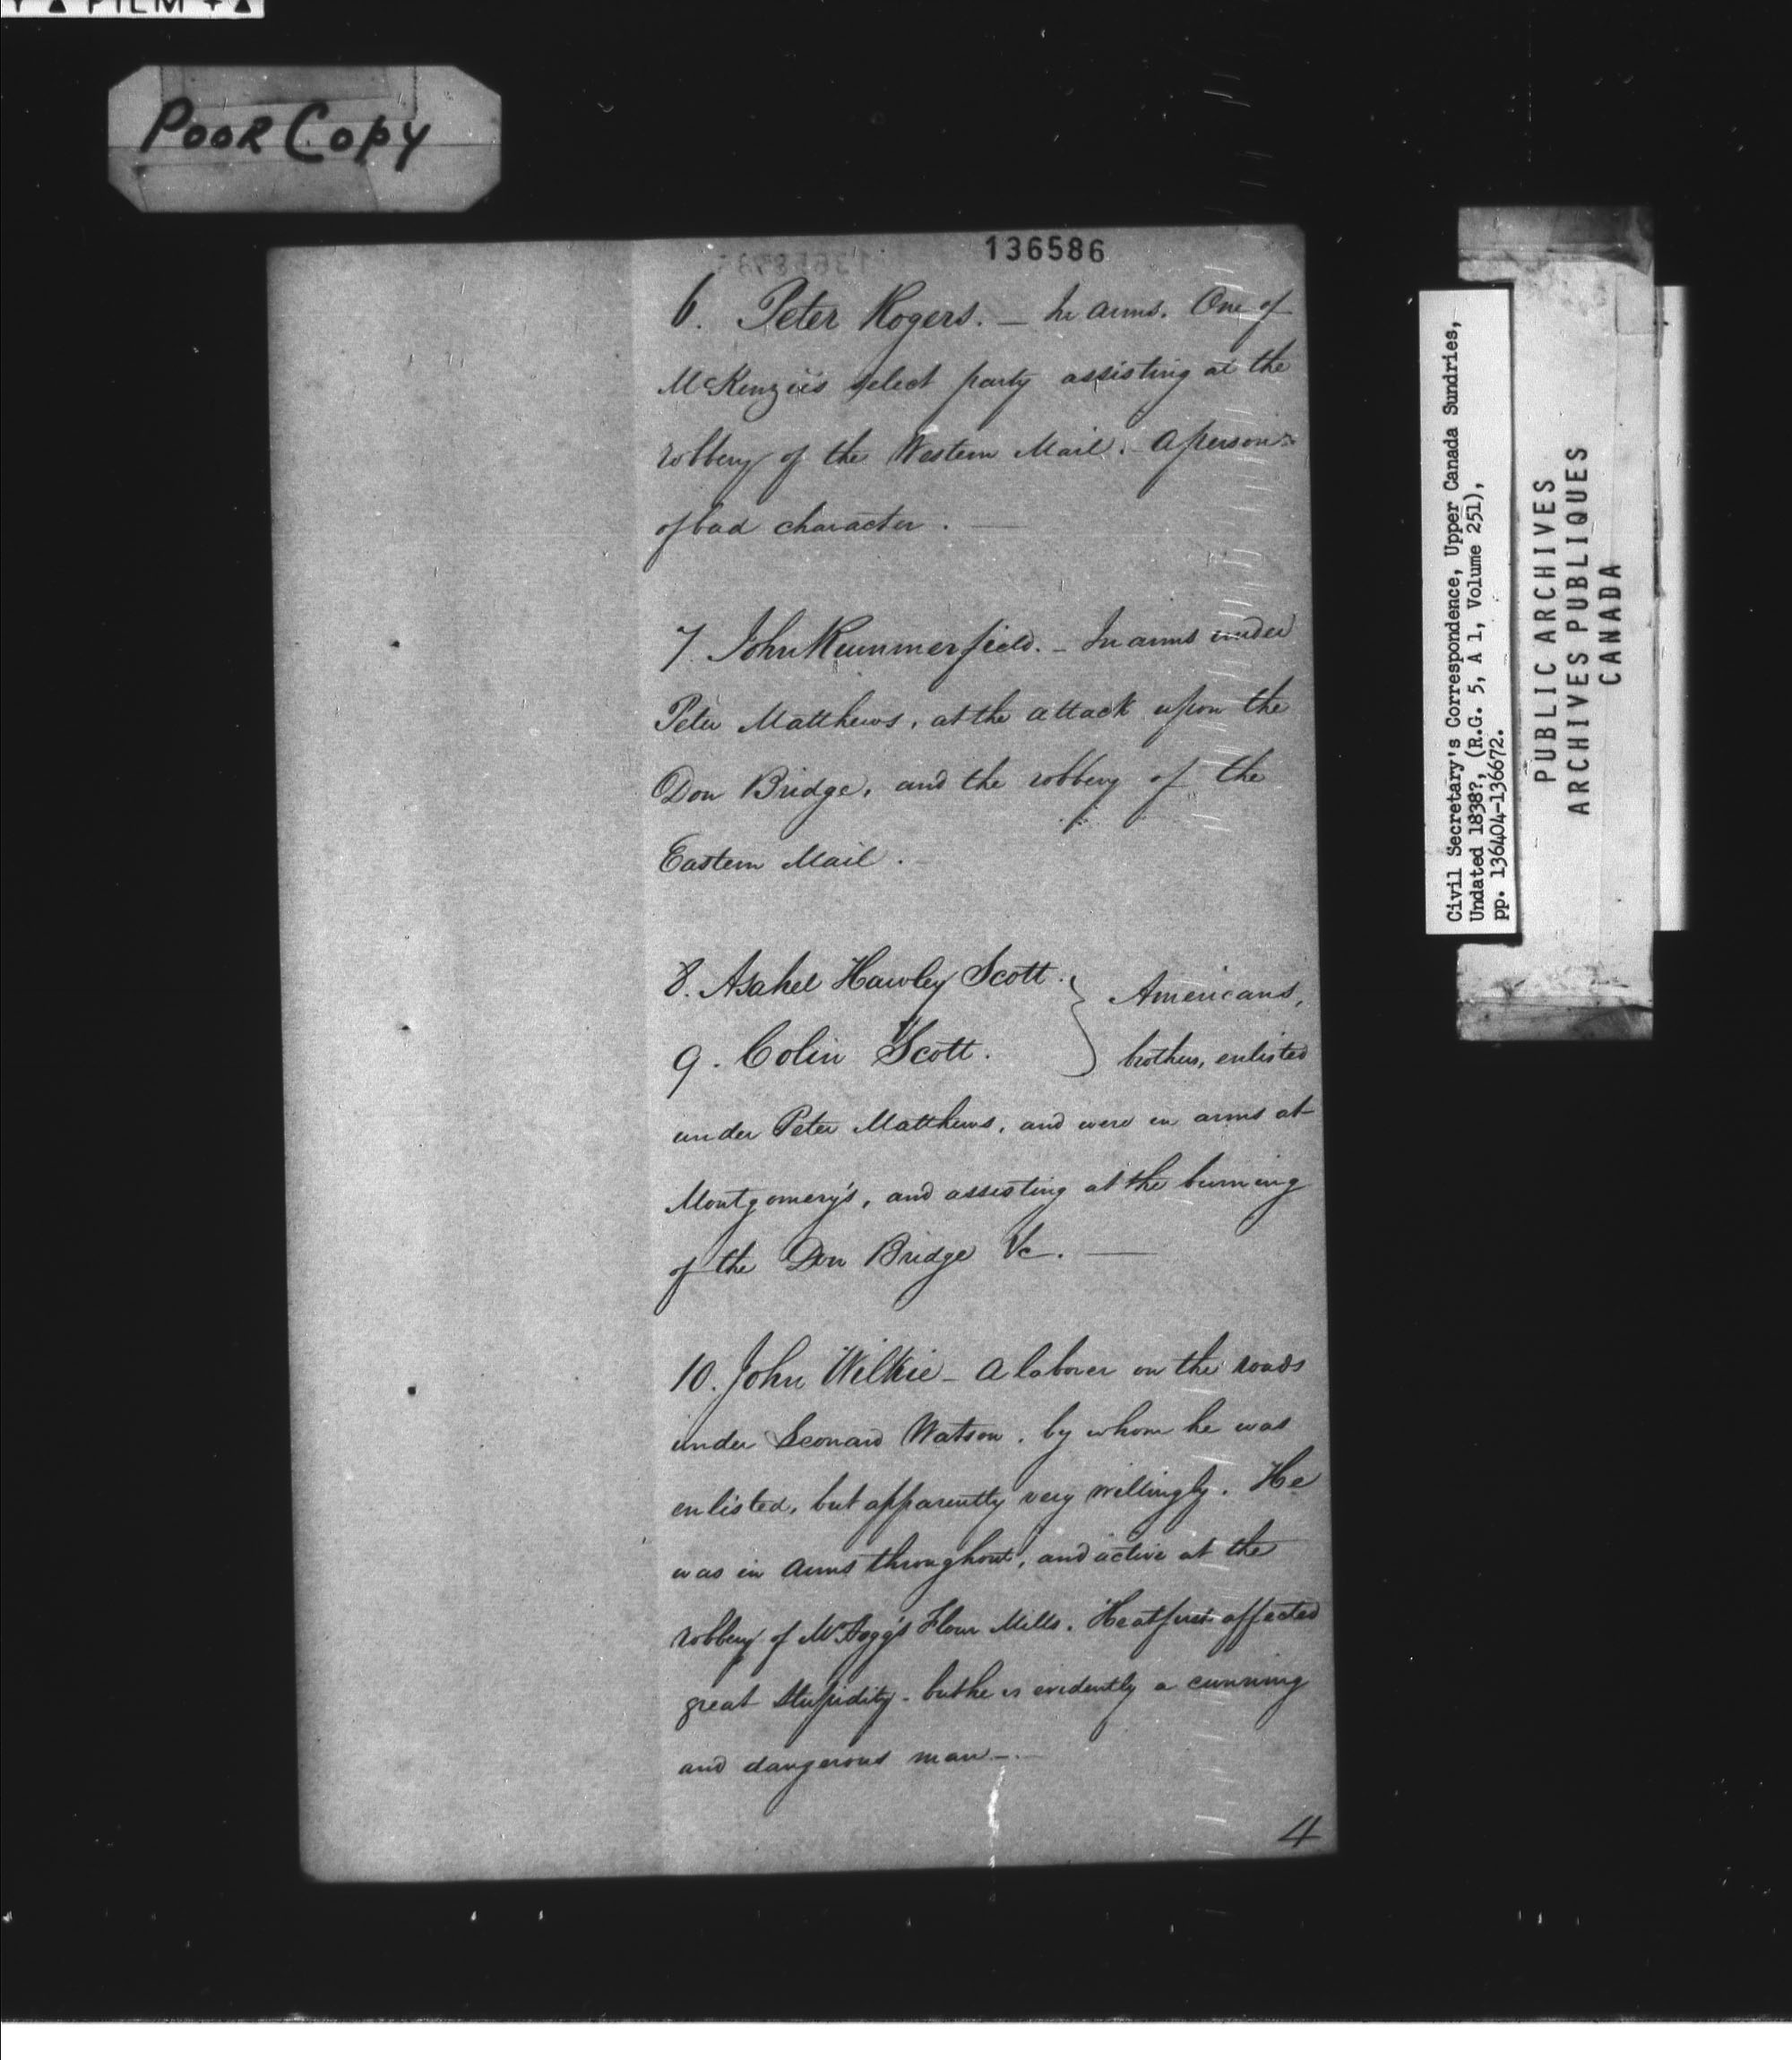 POOR COPY
136586
6. Peter Rogers. — In arms. One of
McKenzie's select party assisting at the
robbery of the Western Mail. A person
of bad character. —
7. John Kummerfield. — In arms under
Peter Matthews, at the attack upon the
Don Bridge, and the robbery of the
Eastern Mail.
8. Asahel Hawley Scott. } Americans,
9. Colin Scott. } brothers, enlisted
under Peter Matthews, and were in arms at
Montgomery's, and assisting at the burning
of the Don Bridge &c. —
10. John Wilkie — A laborer on the roads
under Leonard Watson, by whom he was
enlisted, but apparently very willingly. He
was in arms throughout, and active at the
robbery of Flour Mills. He at first affected
great stupidity - but he is evidently a cunning
and dangerous man —.
4
Civil Secretary's Correspondence, Upper Canada Sundries,
Undated 1838?, (R.G. 5, A 1, Volume 251),
pp. 136404-136672.
PUBLIC ARCHIVES
ARCHIVES PUBLIQUES
CANADA